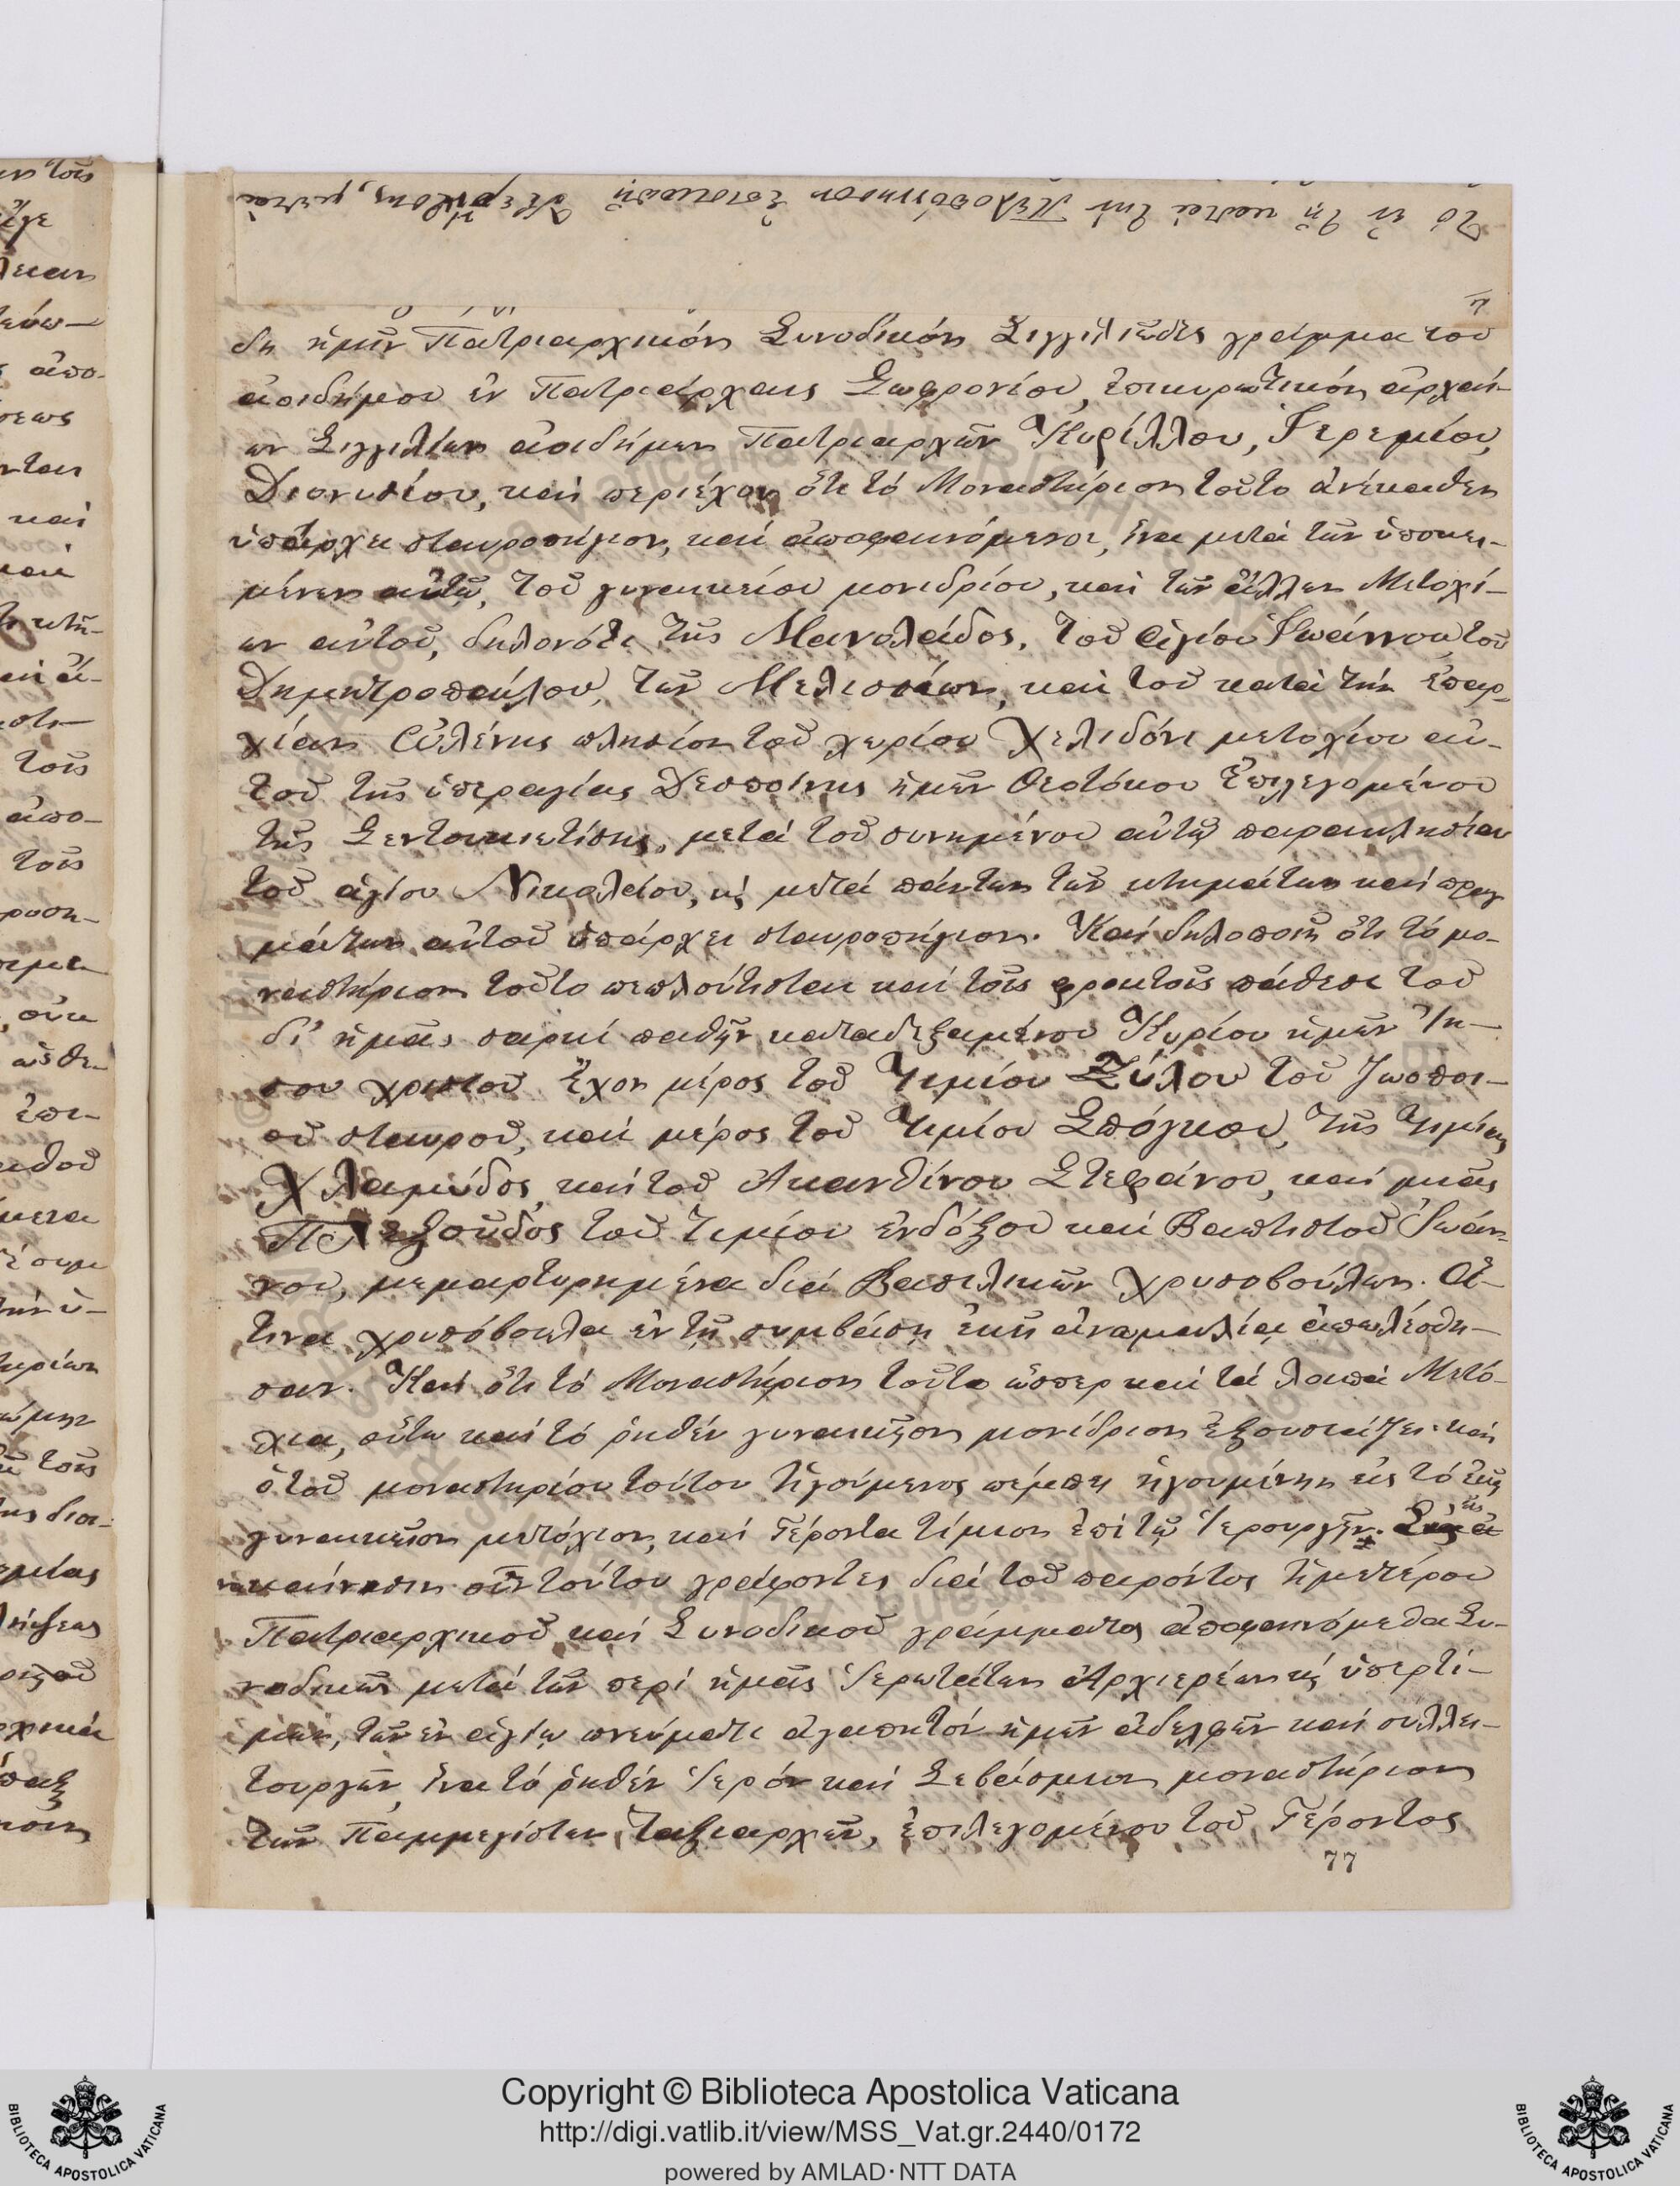 τό ἐν τῇ κατά τήν Πελοπόννησον Ἐπισκοπῇ Κερνίκης, μετά
δη ἡμῖν Πατριαρχικόν Συνοδικόν Σιγγιλιῶδες γράμμα τοῦ
ἀοιδήμου ἐν Πατριάρχαις Σωφρονίου, ἐπικυρωτικόν ἀρχαί-
ων Σιγγιλίων ἀοιδήμων Πατριαρχῶν Κυρίλλου, Ἱερεμίου,
Διονυσίου, καί περιέχον ὅτι τό Μοναστήριον τοῦτο ἀνέκαθεν
ὑπάρχει σταυροπήγιον, καί ἀποφαινόμενοι, ἵνα μετά τῶν ὑποκει-
μένων αὐτῷ, τοῦ γυναικείου μονιδρίου, καί τῶν ἄλλων Μετοχί-
ων αὐτοῦ, δηλονότι τῆς Μανολάδος, τοῦ Ἁγίου Ἰωάννου τοῦ
Δημητροπούλου, τῶν Μελισσίων, καί τοῦ κατά τήν Ἐπαρ-
χίαν Ὠλένης πλησίον τοῦ χωρίου Χελιδόνι μετοχίου αὐ-
τοῦ τῆς ὑπεραγίας Δεσποίνης ἡμῶν Θεοτόκου Ἐπιλεγομένου
τῆς Σεντουκιωτίσης, μετά τοῦ συνημένου αὐτῷ παρακλησίου
τοῦ ἁγίου Νικολάου, κ μετά πάντων τῶν κτημάτων καί πραγ
μάτων αὐτοῦ ὑπάρχει σταυροπήγιον. Καί δηλοποιῇ ὅτι τό μο-
ναστήριον τοῦτο πεπλούτισται καί τοῖς φρικτοῖς πάθεσι τοῦ
δι' ἡμᾶς σαρκί παθῆν καταδεξαμένου Κυρίου ἡμῶν Ἰη-
σου χριστοῦ Ἔχον μέρος τοῦ Τιμίου Ξύλου τοῦ ζωοποι-
οῦ σταυροῦ, καί μέρος τοῦ Τιμίου Σπόγκου, τῆς Τιμίας
Χλαμύδος, καί τοῦ Ἀκανθίνου Στεφάνου, καί μιᾶς
Πλεξοῦδος τοῦ Τιμίου ἐνδόξου καί Βαπτιστοῦ Ἰωάν-
νου, μεμαρτυρημένα διά Βασιλικῶν χρυσοβούλων. Ἅ-
τινα χρυσόβουλα ἐν τῇ συμβάσῃ ἐκεῖ ἀνωμαλίᾳ ἀπωλέσθη-
σαν. Καί ὅτι τό Μοναστήριον τοῦτο ὥσπερ καί τά λοιπά Μετό-
χια, οὕτω καί τό ῥηθέν γυναικεῖον μονίδριον ἐξουσιάζει. καί
ὁ τοῦ μοναστηρίου τούτου Ἡγούμενος πέμπει ἡγουμένην εἰς τό ἐκεῖ
γυναικεῖον μετόχιον, καί Γέροντα τίμιον ἐπί τῷ Ἱερουργεῖν.
οὖν τούτου γράφοντες διά τοῦ παρόντος ἡμετέρου
Πατριαρχικοῦ καί Συνοδικοῦ γράμματος ἀποφαινόμεθα Συ-
νοδικῶς μετά τῶν περί ἡμᾶς Ἱερωτάτων Ἀρχιερέων κ ὑπερτί-
μων, τῶν ἐν ἁγίῳ πνεύματι ἀγαπητῶν ἡμῶν ἀδελφῶν καί συλλει-
τουργῶν, ἵνα τό ῥηθέν Ἱερόν καί Σεβάσμιον μοναστήριον
τῶν Παμμεγίστων Ταξιαρχῶν, ἐπιλεγομένου τοῦ Γέροντος
77
Copyright © Biblioteca Apostolica Vaticana
http://digi.vatlib.it/view/MSS_Vat.gr.2440/0172
powered by AMLAD·NTT DATA
BIBLIOTECA APOSTOLICA VATICANA
BIBLIOTECA APOSTOLICA VATICANA